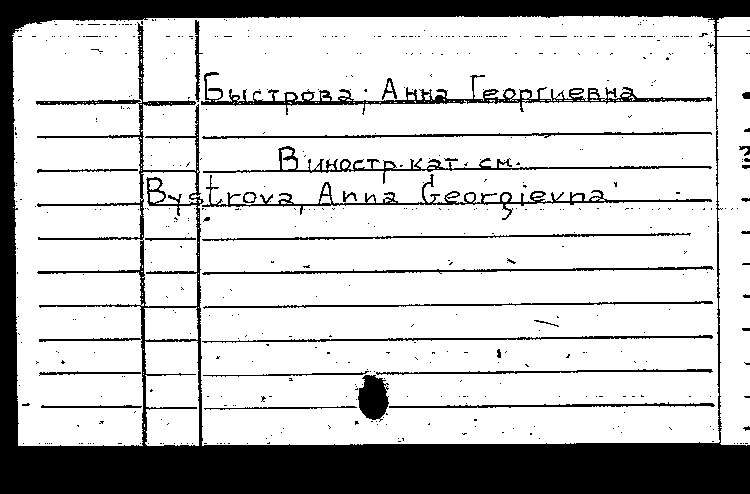 Быстрова, Анна Георгиевна
В иностр. кат. см.
Bystrova, Anna Georgievna